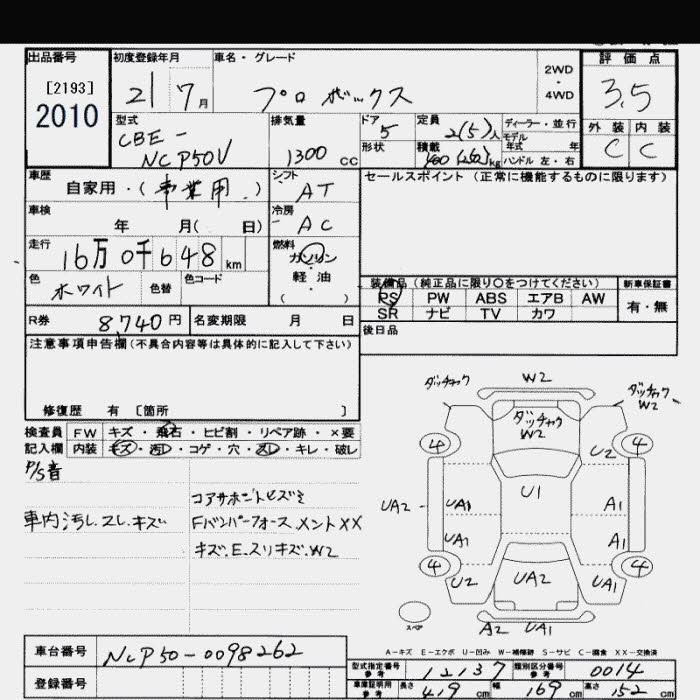 出品番号 初度登録年月 車名・グレード 2WD・4WD 評価点
[2193] 2010 21 7月 プロボックス 3.5
型式 CBE-NCP50V 排気量 1300cc ドア 5 形状 定員 2(5)人 積載 kg ディーラー・並行 モデル年式 年 ハンドル 左・右 外装 C 内装 C
車歴 自家用・(事業用) シフト AT セールスポイント(正常に機能するものに限ります)
車検 年 月( 日) 冷房 AC
走行 16万0千648km 燃料 ガソリン・軽油 ( )
色 ホワイト 色替 色コード
装備品(純正品に限り○をつけてください) 新車保証書
PS PW ABS エアB AW 有・無
SR ナビ TV カワ
R券 8,740円 名変期限 月 日 後日品
注意事項申告欄(不具合内容等は具体的に記入して下さい)
修復歴 有 〔箇所 〕
検査員 FW キズ・飛石・ヒビ割・リペア跡・×要
記入欄 内装 キズ・汚レ・コゲ・穴・スレ・キレ・破レ
P/S音
車内汚レ.スレ.キズ
コアサポートヒズミ
Fバンパーフォースメント XX
キズ.E.スリキズ.W2
ダッチャク W2 ダッチャク W2
ダッチャク W2
4 4
U2
U1
UA2 UA1 A1
UA1 A1
4 4
U2 UA2 UA1
スペア A2 UA1
A-キズ E-エクボ U-凹み W-補修跡 S-サビ C-腐食 XX-交換済
車台番号 NCP50-0098262
登録番号
型式指定番号 参考 12137 類別区分番号 参考 0014
車庫証明用 参考 長さ 419cm 幅 169cm 高さ 152cm